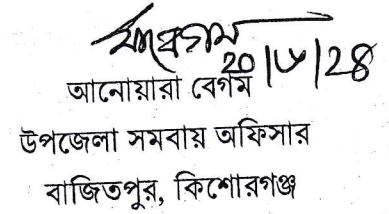 আনোয়ারা বেগম
উপজেলা সমবায় অফিসার
বাজিতপুর, কিশোরগঞ্জ